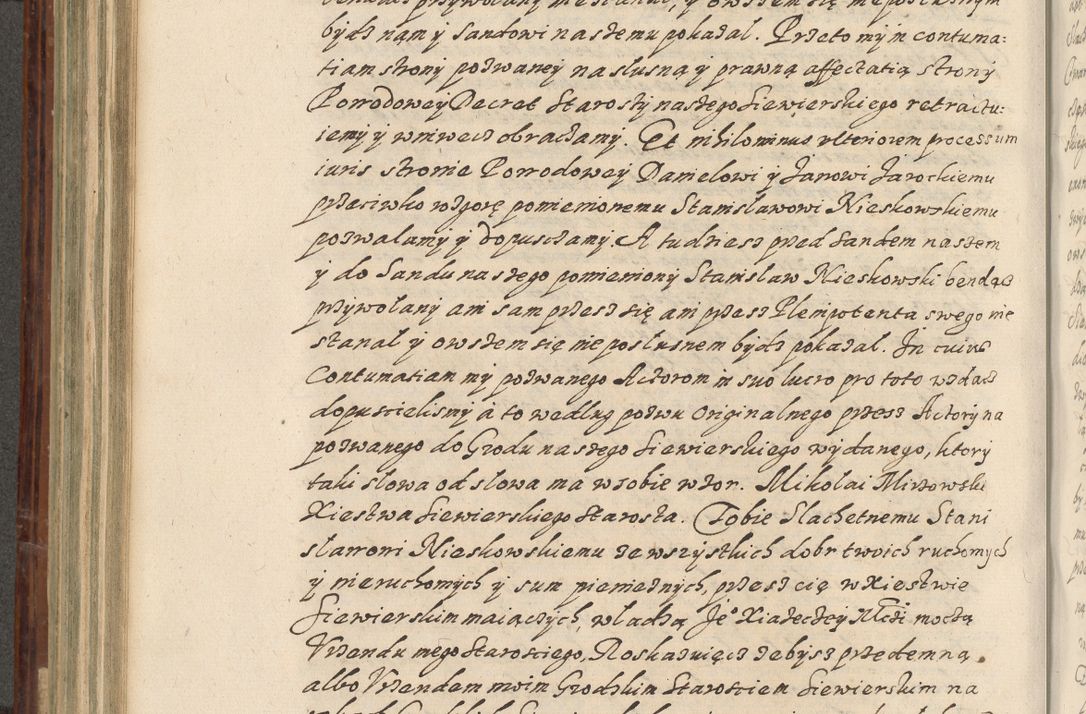 bydz nąm y Sandowi naszemu pokazal. Przeto my in contuma=
tiam strony pozwaney na slusną y prawną affectatią strony
Powodowey Decret Starosty naszego Siewierskiego retractu=
iemy y wniwecz obraczamy. Et nihilominus ulteriorem processum
iuris stronie Powodowey Danielowi y Janowi Jarockiemu
przeciwko wzgorę pomienionemu Stanislawowi Nieskowskiemu
pozwalamy y dopusczamy. A tudziesz przed Sandem naszem
y do Sandu naszego pomieniony Stanislaw Nieskowski bendącz
przywolany ani sam przesz się ani przesz Plenipotenta swego nie
stanal y owszem się nie poslusnem bydz pokazal. In cuius
Contumatiam my pozwanego Actorom in suo lucro pro toto wzdacz
dopuscielismy à to wedlug pozwu Originalnego przesz Actory na
pozwanego do Grodu naszego Siewierskiego wydanego, ktory
taki slowa od slowa ma w sobie wzor. Mikolai Mirzowski
Xiestwa Siewierskiego Starosta. Tobie Slachetnemu Stani
slawowi Nieskowskiemu ze wszystkich dobr twoich ruchomych
y nieruchomych y sum pieniezných, przesz cię w Xiestwie
Siewierskim maiączych, wladzą Je° Xiazeczey Mczi moczą
Vrzendu mego Starosciego, Roskazuięcz zebysz przedemną
albo Vrzendem moim Grodzkim Starosciem Siewierskim na